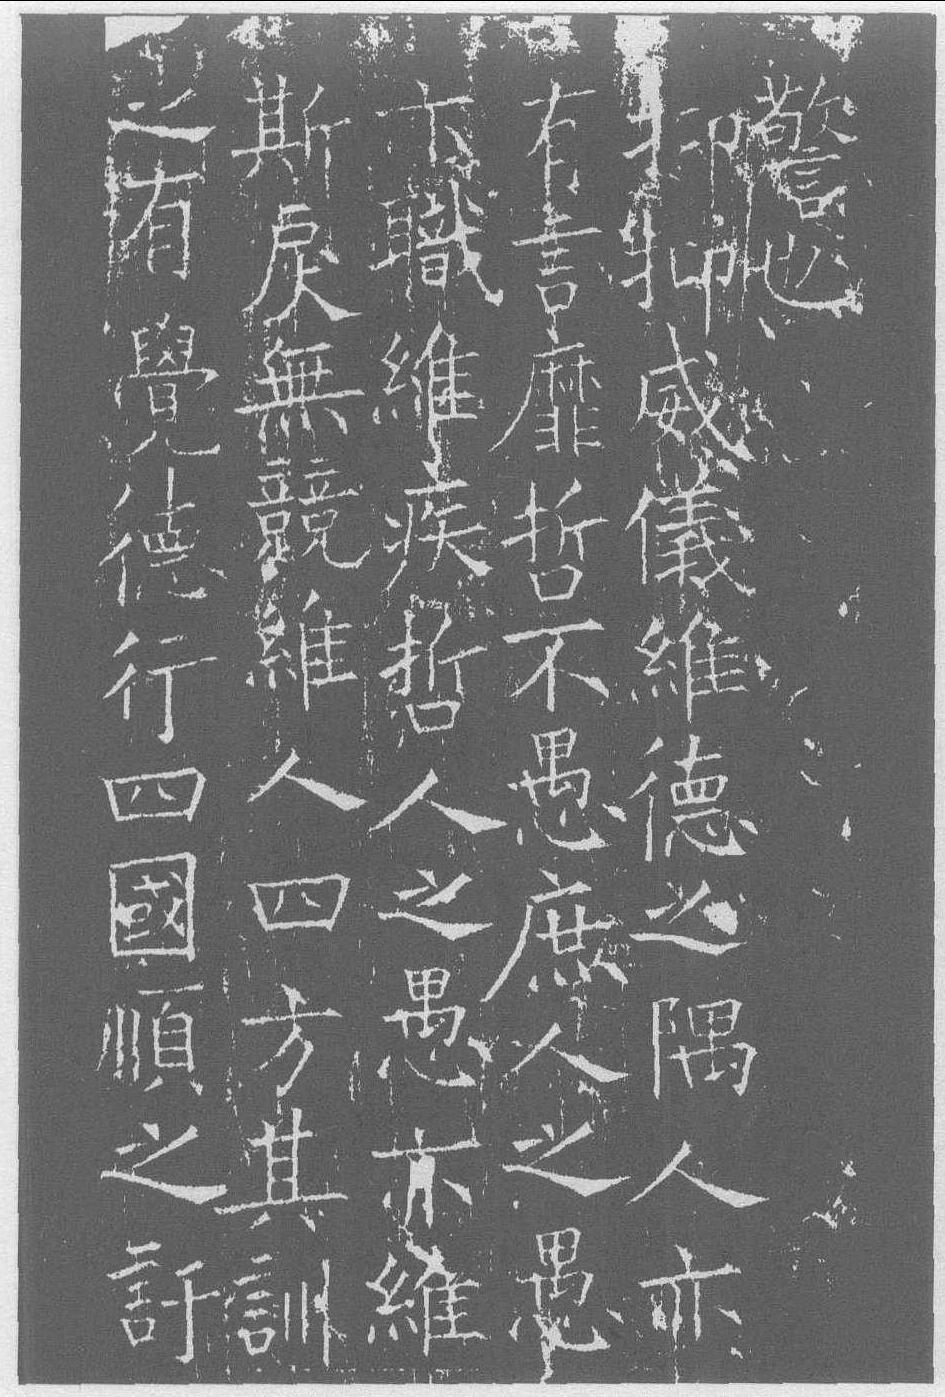 警也
抑抑威儀維德之隅人亦
有言靡哲不愚庶人之愚
亦職維疾哲人之愚亦維
斯戾無競維人四方其訓
之有覺德行四國順之訏